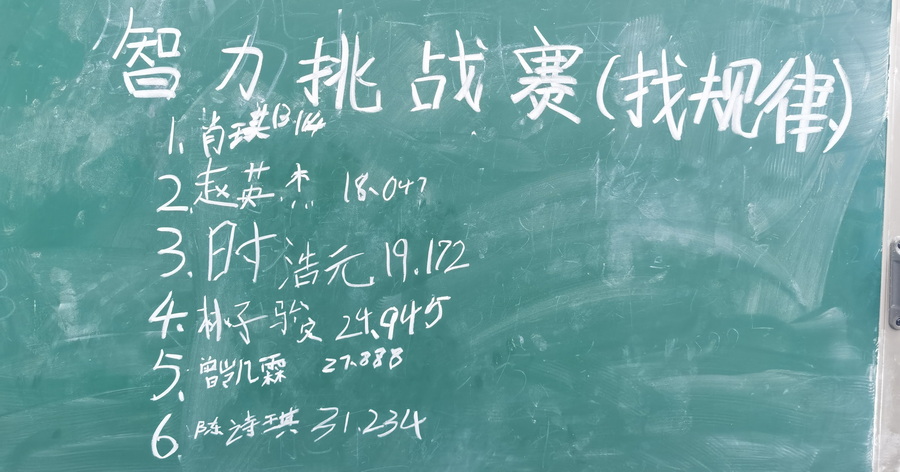 智力挑战赛(找规律)
1. 肖琪 13.14
2. 赵英杰 18.047
3. 时浩元 19.172
4. 林子骏 24.945
5. 曾凯霖 27.888
6. 陈诗琪 31.234